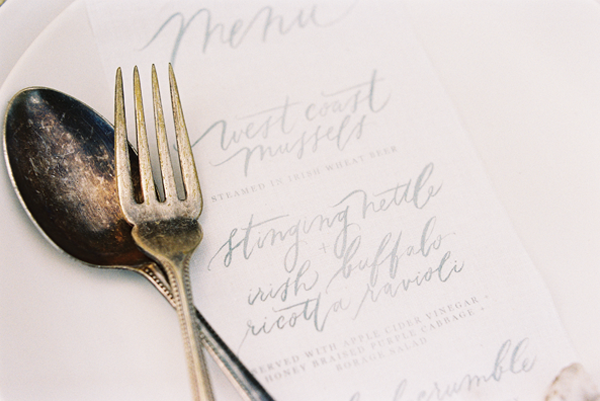 menu
west coast
mussels
STEAMED IN IRISH WHEAT BEER
stinging nettle
+
irish buffalo
ricotta ravioli
SERVED WITH APPLE CIDER VINEGAR +
HONEY BRAISED PURPLE CABBAGE +
BORAGE SALAD
crumble